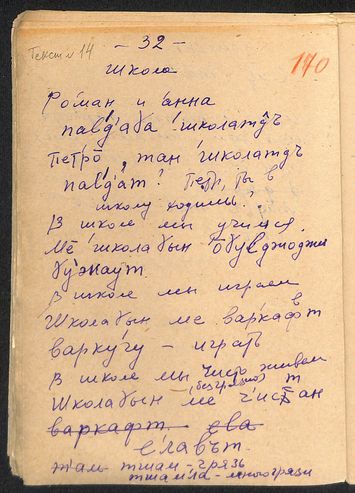 Текст № 14
– 32 –
170
школа
Роман и анна
школатдъ
Петрӯ, тан школатдъ
павдат? Петр, ты в
школу ходишь?
В школе мы учимся.
Ме школабын
В школе мы играем
Школабын ме варкафт
варкугу – играть
В школе мы чисто живем
(без грязи)
Школабын ме чистан
варкафт. ева
елавът.
тшам – грязь
тшамла – многогрязи